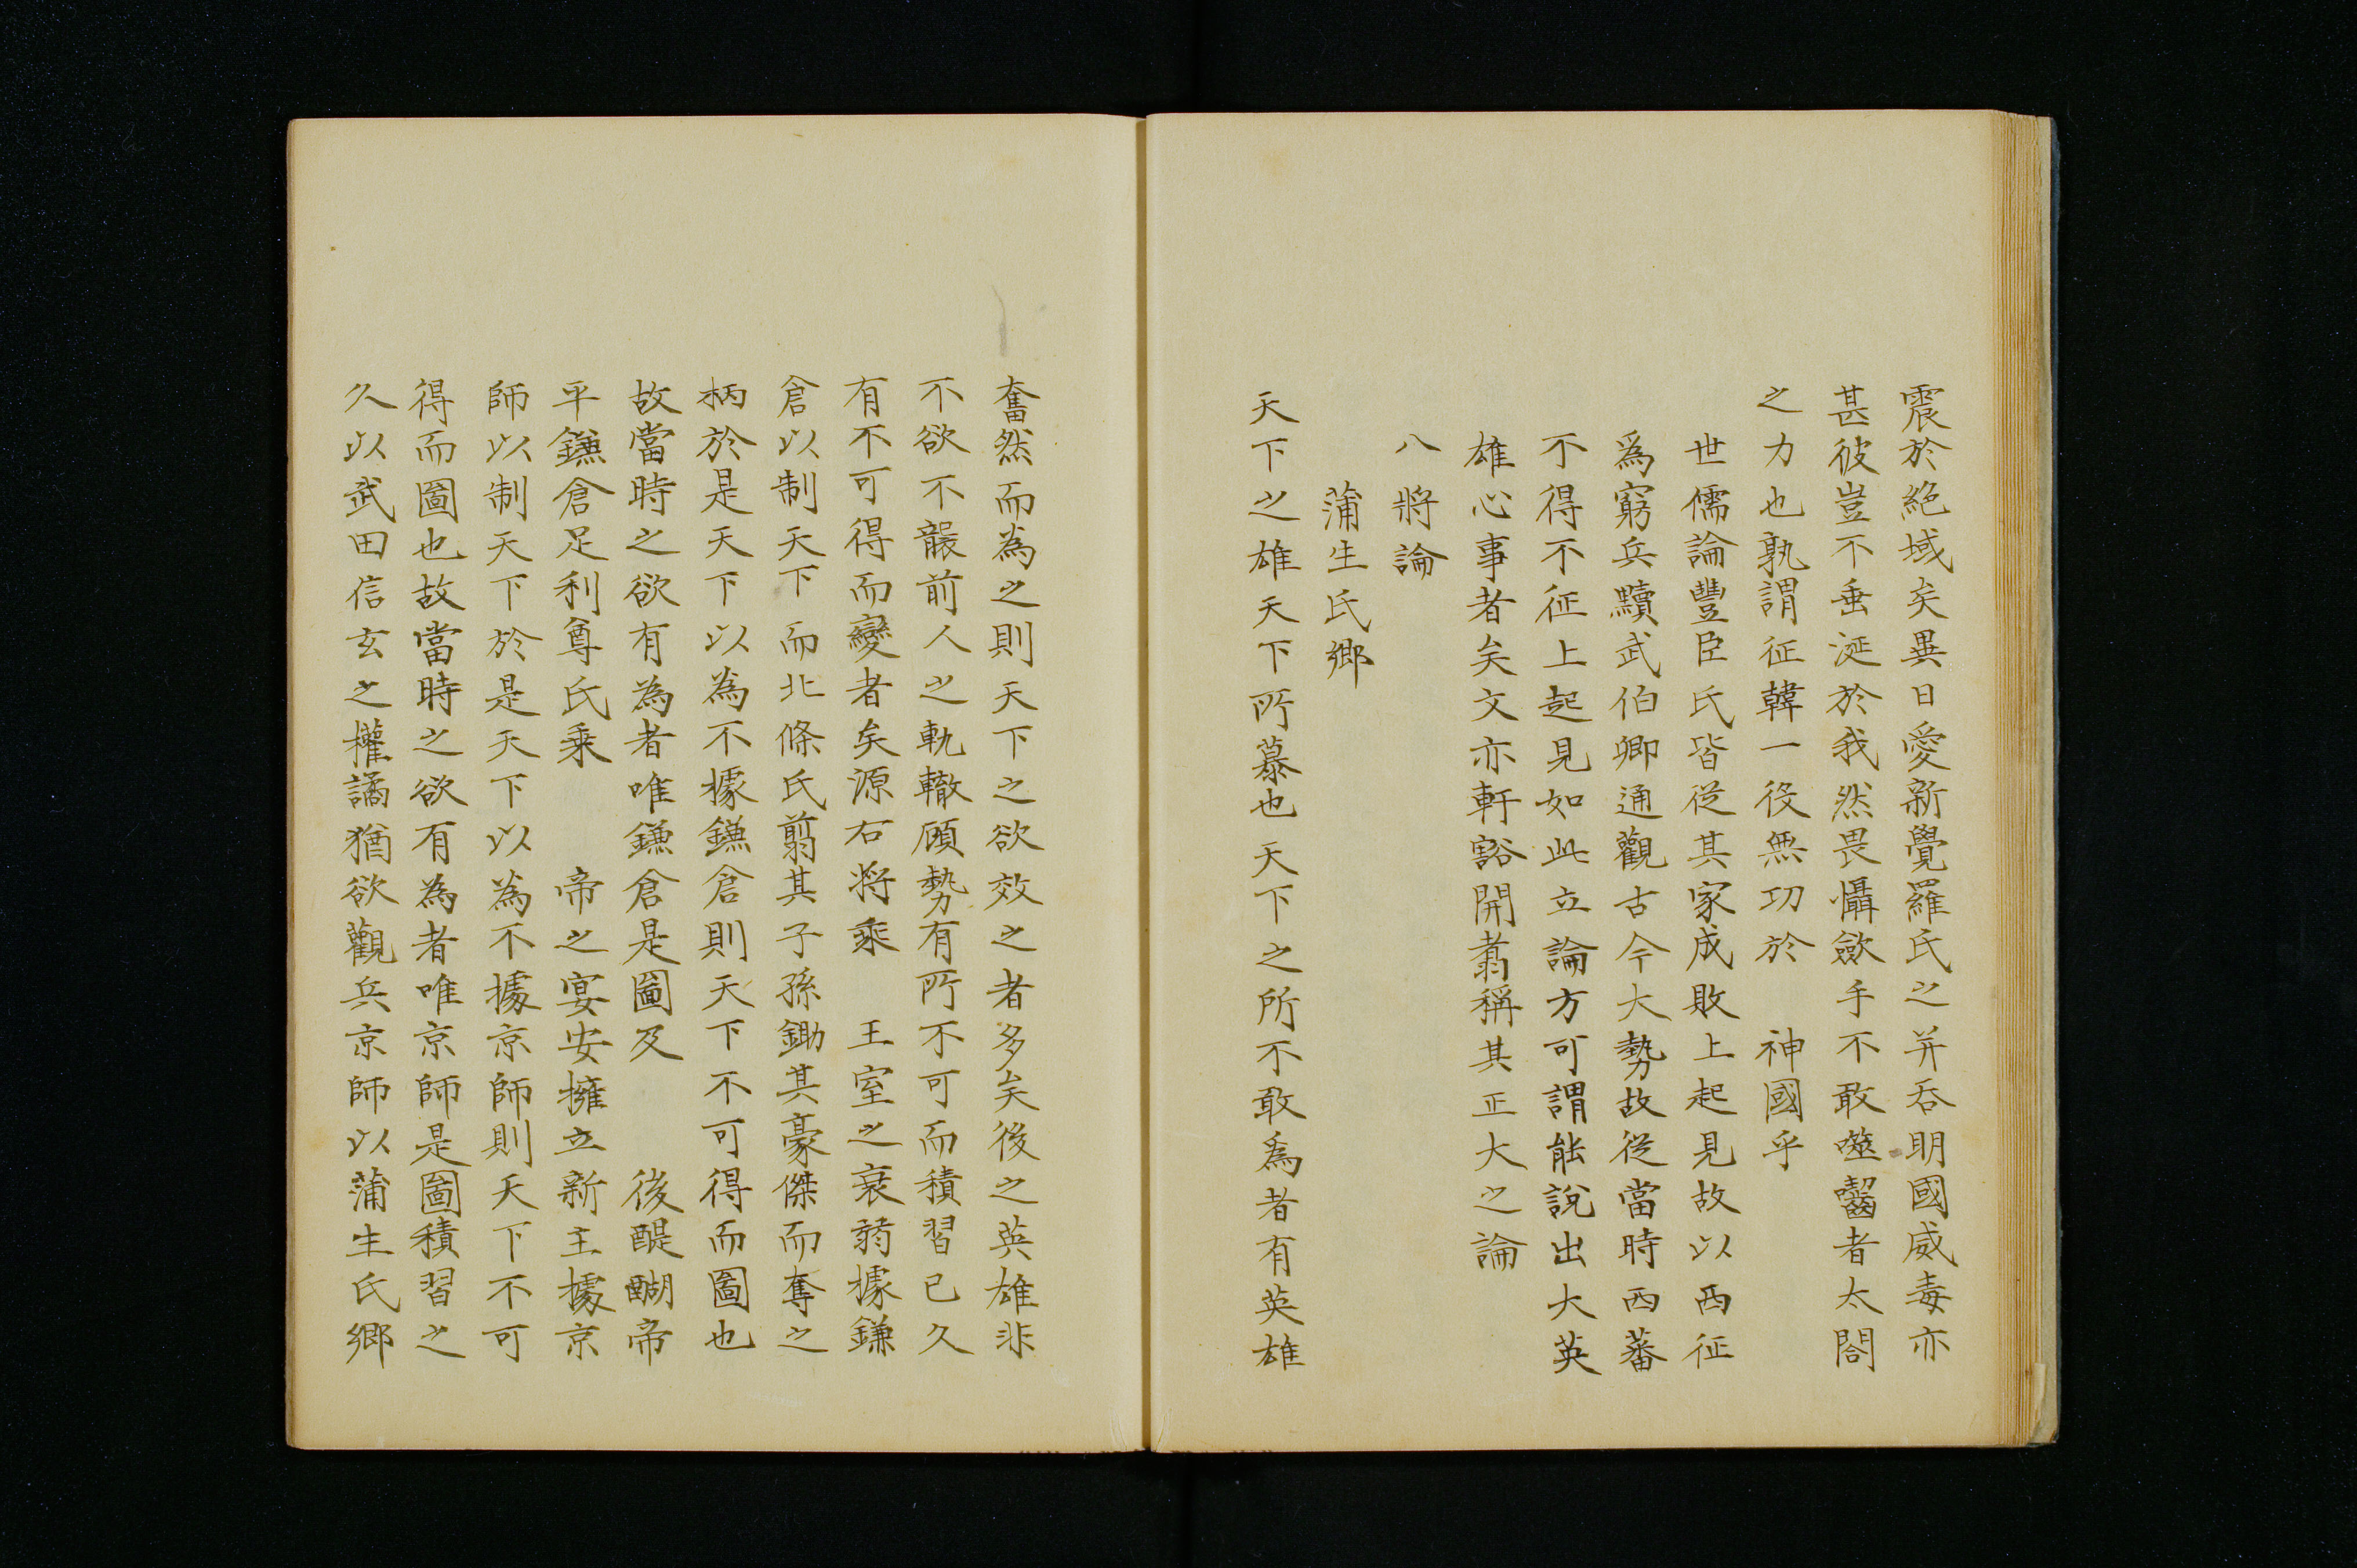 震於絶域矣異日愛新覺羅氏之并呑明國威毒亦
甚彼豈不垂涎於我然畏懾歛手不敢噬齧者太閤
之力也孰謂征韓一役無功於　神國乎
世儒論豐臣氏皆從其家成敗上起見故以西征
爲窮兵黷武伯卿通觀古今大勢故從當時西蕃
不得不征上起見如此立論方可謂能說出大英
雄心事者矣文亦軒豁開翥稱其正大之論
八將論
蒲生氏郷
天下之雄天下所慕也天下之所不敢爲者有英雄
奮然而為之則天下之欲效之者多矣後之英雄非
不欲不襲前人之軌轍顧勢有所不可而積習已久
有不可得而變者矣源右將乘　王室之衰弱據鎌
倉以制天下而北條氏翦其子孫鋤其豪傑而奪之
柄於是天下以為不據鎌倉則天下不可得而圖也
故當時之欲有為者唯鎌倉是圖及　後醍醐帝
平鎌倉足利尊氏乘　帝之宴安擁立新主據京
師以制天下於是天下以為不據京師則天下不可
得而圖也故當時之欲有為者唯京師是圖積習之
久以武田信玄之權譎猶欲觀兵京師以蒲生氏郷